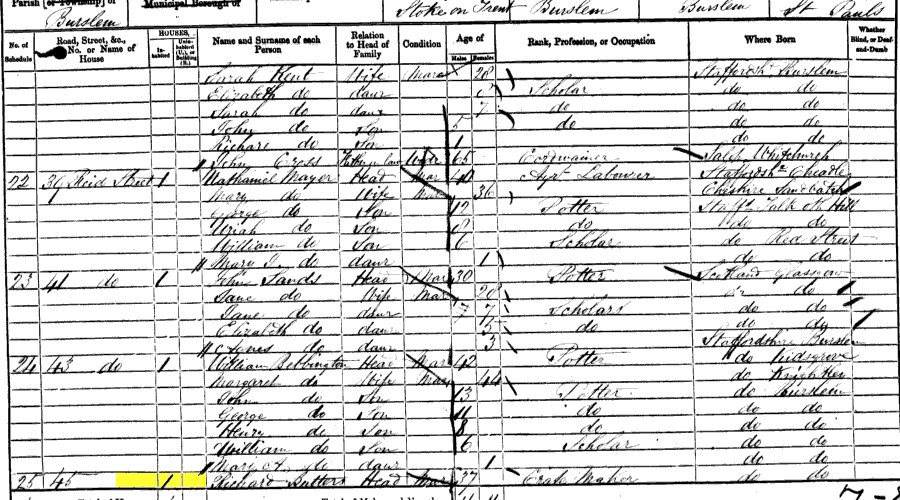 Parish [or Township] of
Burslem
Municipal Borough of
Stoke on Trent Burslem
Burslem
St Pauls
No. of Schedule
Road, Street, &c., No. or Name of House
HOUSES
In-habited
Unin-habited (U.), or Building (B.)
Name and Surname of each Person
Relation to Head of Family
Condition
Age of
Males
Females
Rank, Profession, or Occupation
Where Born
Whether Blind, or Deaf-and-Dumb
Sarah Kent Wife Mar 28 Staffordsh Burslem
Elizabeth do daur 8 Scholar do do
Sarah do daur 7 do do do
John do Son 5 do do do
Richard do Son 1 do do
John Cross 65 Cordwainer Salop Whitchurch
22 39 Reid Street 1 Nathaniel Mayer Head Mar 40 Labourer Staffordsh Cheadle
Mary do Wife Mar 36 Cheshire Sandbach
George do Son 12 Potter Staffs Talk O Hill
Uriah do Son 8 do do do
William do Son 6 Scholar do Red Street
Mary J. do daur 1 do do
23 41 do 1 John Sands Head Mar 30 Potter Scotland Glasgow
Jane do Wife Mar 28 do do
Jane do daur 7 Scholars do do
Elizabeth do daur 5 do do do
Agnes do daur 3 Staffordshire Burslem
24 43 do 1 William Bebbington Head Mar 42 Potter do Kidsgrove
Margaret do Wife Mar 44 do
John do Son 13 Potter do Burslem
George do Son 11 do do do
Henry do Son 8 do do do
William do Son 6 Scholar do do
Mary A do daur 1 do do
25 45 1 Richard Butters Head Mar 37 Crate Maker do do